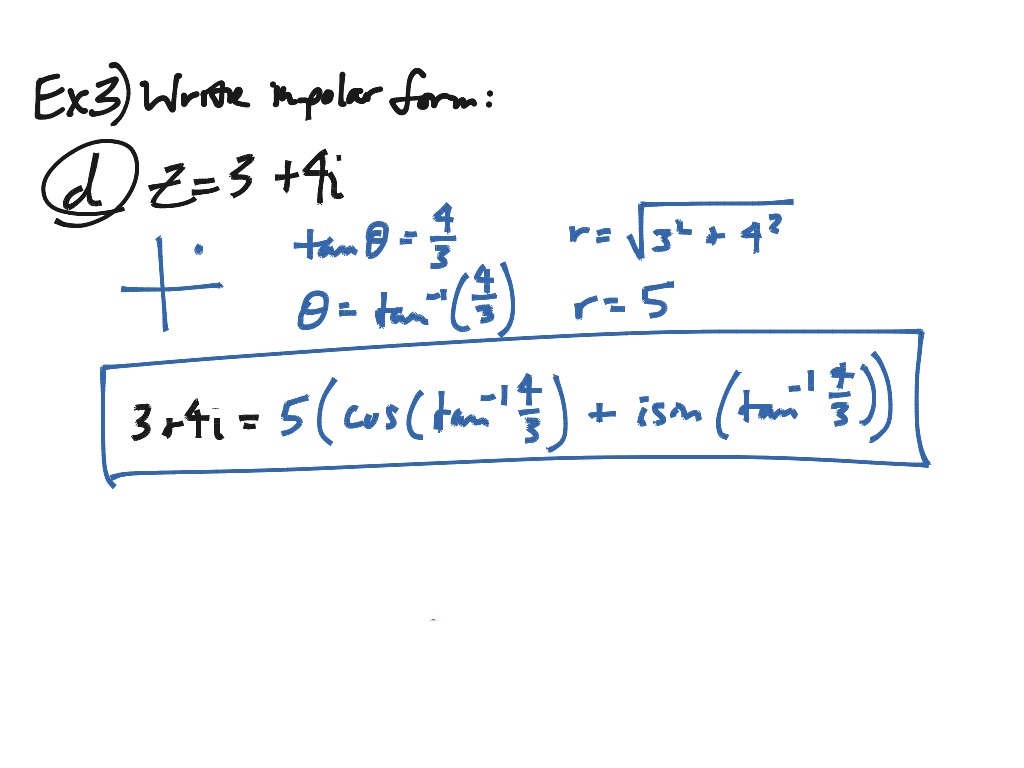 Ex3) Write in polar form:
d z = 3 + 4i
tan θ = 4/3 r = √(3² + 4²)
θ = tan⁻¹(4/3) r = 5
3+4i = 5(cos(tan⁻¹ 4/3) + i sin(tan⁻¹ 4/3))